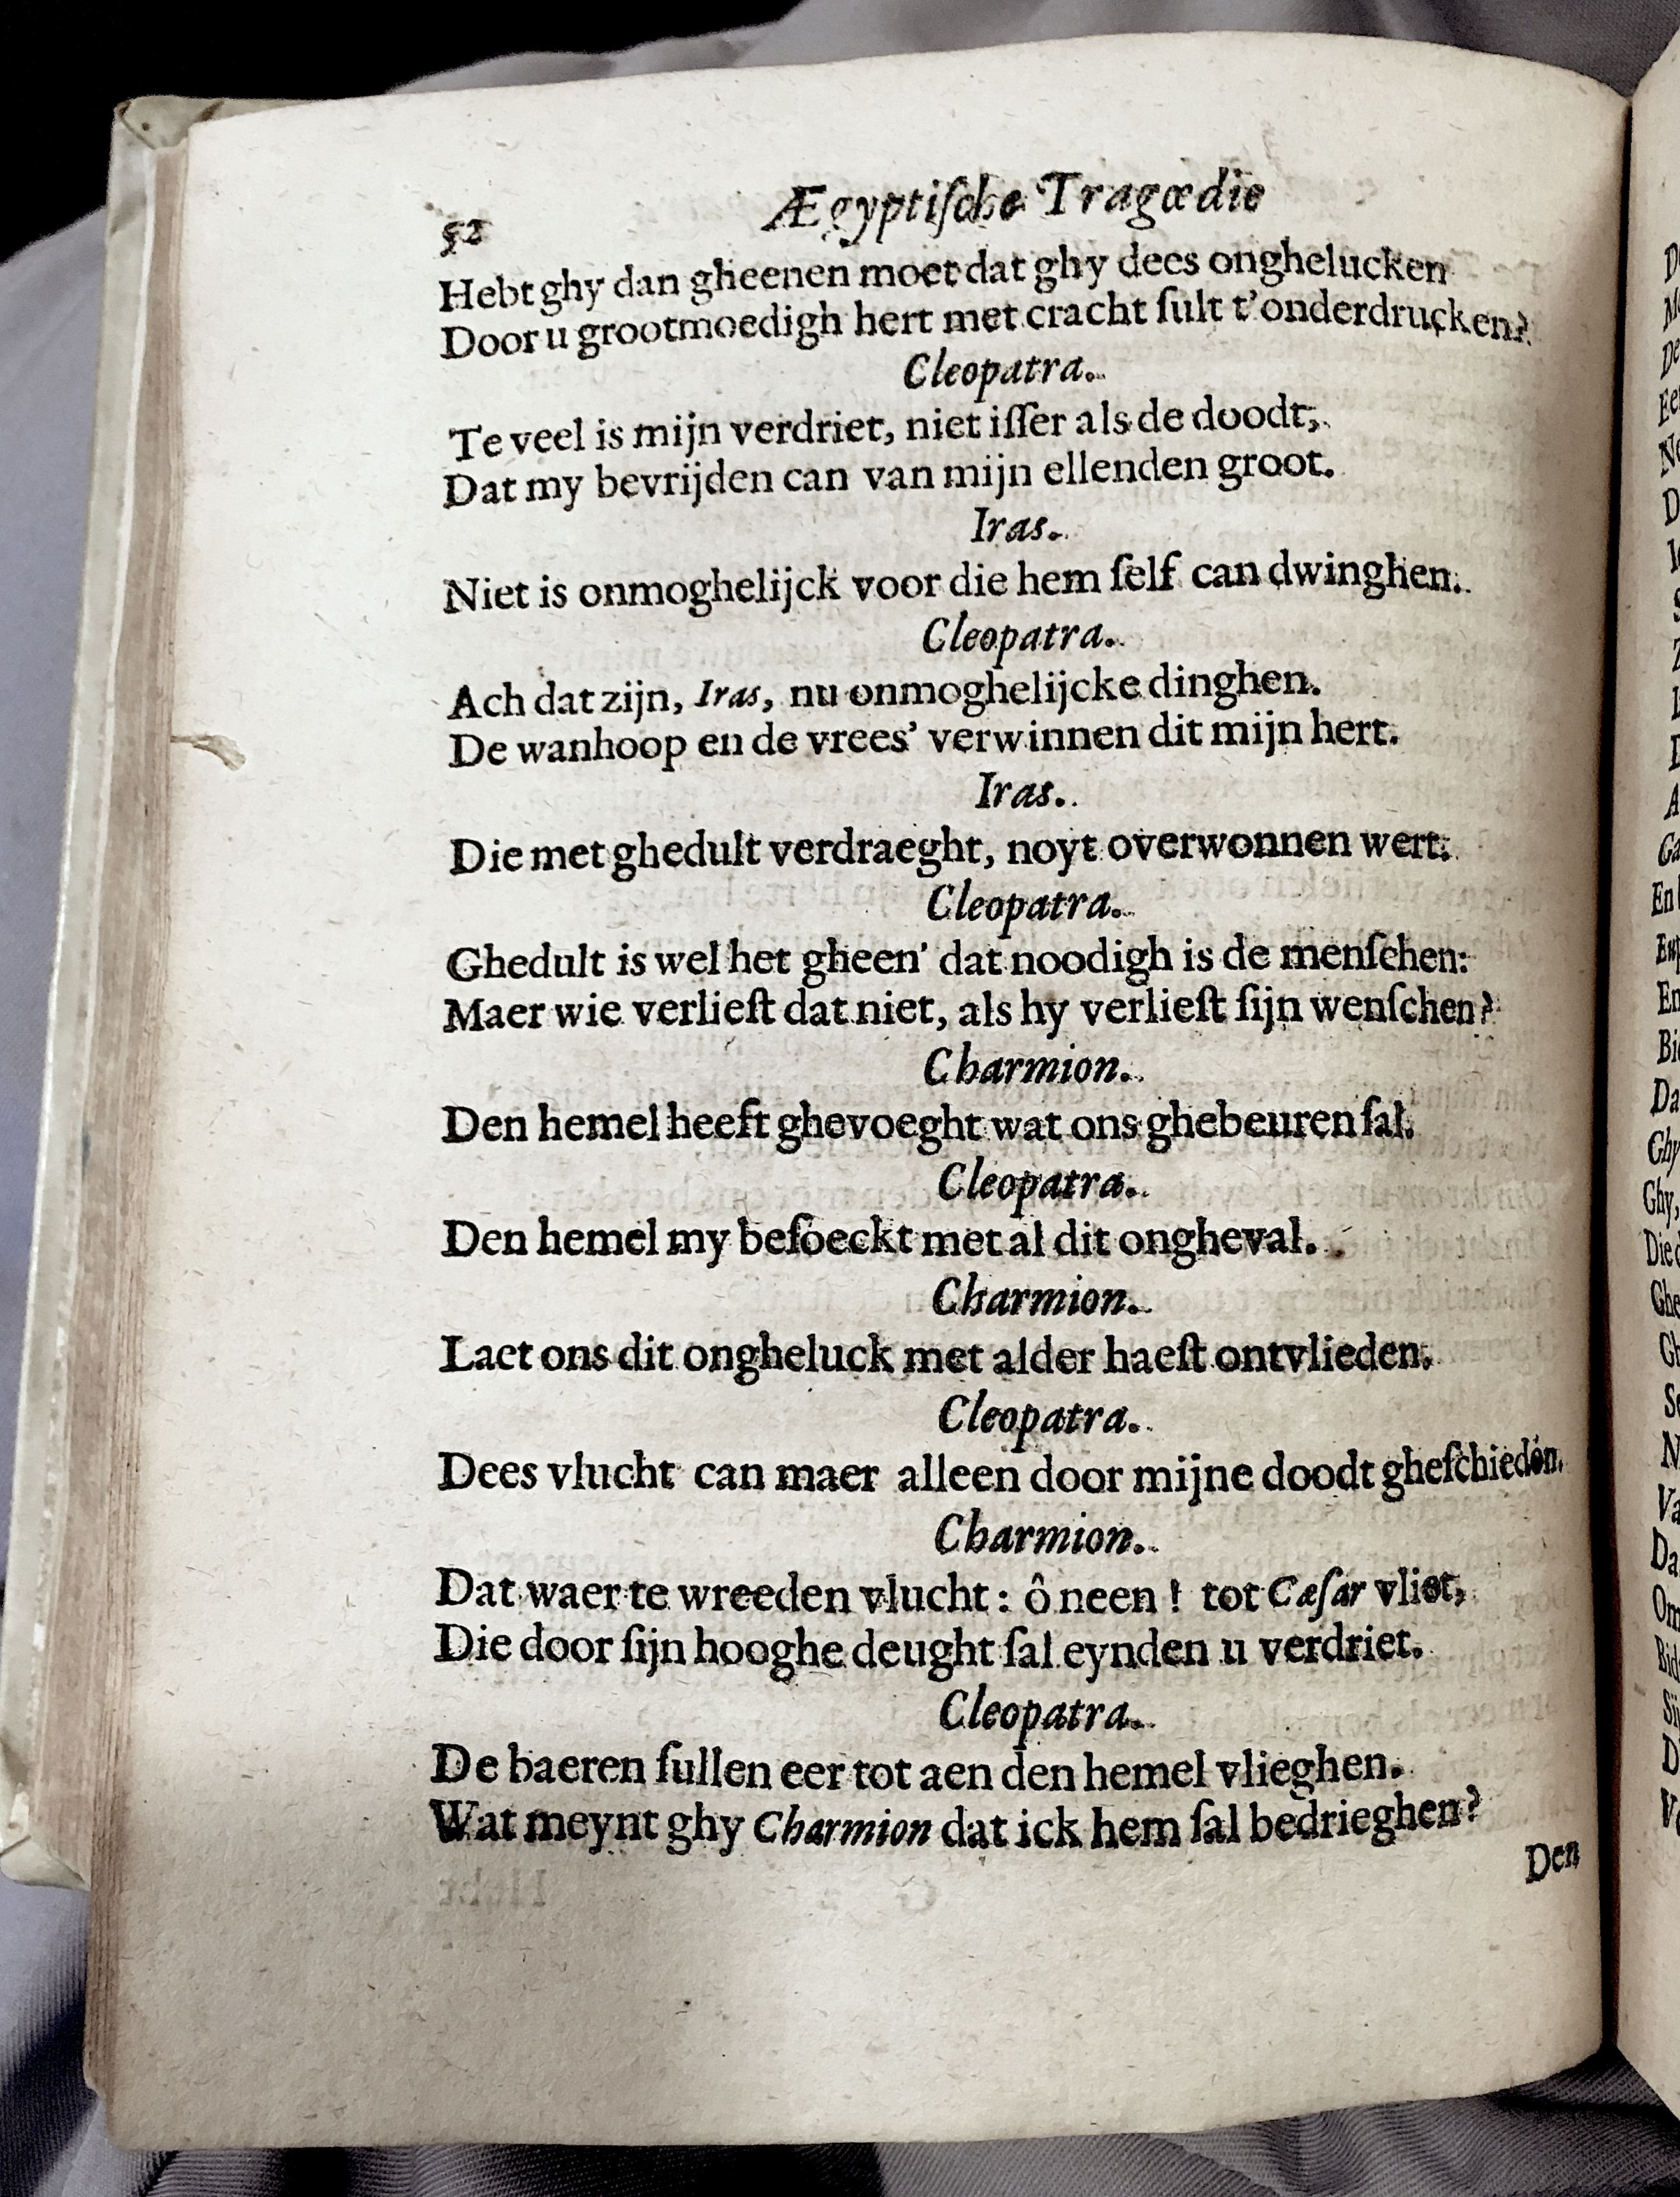 52 Ægyptiſche Tragœdie
Hebt ghy dan gheenen moet dat ghy dees onghelucken
Door u grootmoedigh hert met cracht ſult t'onderdrucken?
Cleopatra.
Te veel is mijn verdriet, niet iſſer als de doodt,
Dat my bevrijden can van mijn ellenden groot.
Iras.
Niet is onmoghelijck voor die hem ſelf can dwinghen.
Cleopatra.
Ach dat zijn, Iras, nu onmoghelijcke dinghen.
De wanhoop en de vrees' verwinnen dit mijn hert.
Iras.
Die met ghedult verdraeght, noyt overwonnen wert.
Cleopatra.
Ghedult is wel het gheen' dat noodigh is de menſchen:
Maer wie verlieſt dat niet, als hy verlieſt ſijn wenſchen?
Charmion.
Den hemel heeft ghevoeght wat ons ghebeuren ſal.
Cleopatra.
Den hemel my beſoeckt met al dit ongheval.
Charmion.
Laet ons dit ongheluck met alder haeſt ontvlieden.
Cleopatra.
Dees vlucht can maer alleen door mijne doodt gheſchieden.
Charmion.
Dat waer te wreeden vlucht: ô neen! tot Cæſar vliet,
Die door ſijn hooghe deught ſal eynden u verdriet.
Cleopatra.
De baeren ſullen eer tot aen den hemel vlieghen.
Wat meynt ghy Charmion dat ick hem ſal bedrieghen?
Den